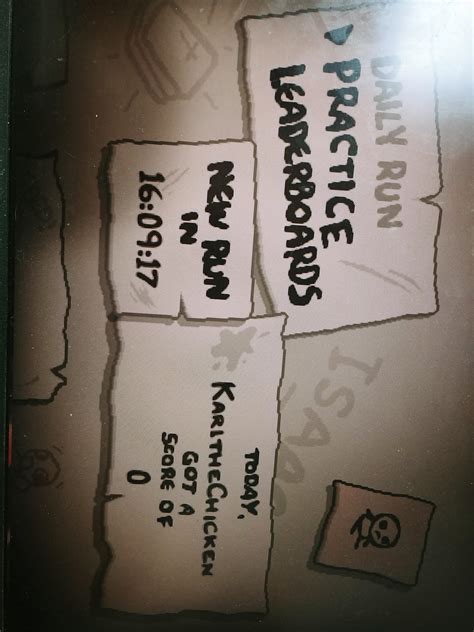 DAILY RUN
PRACTICE
LEADERBOARDS
NEW RUN
IN
16:09:17
TODAY,
KARITHECHICKEN
GOT A
SCORE OF
0
ISAAC